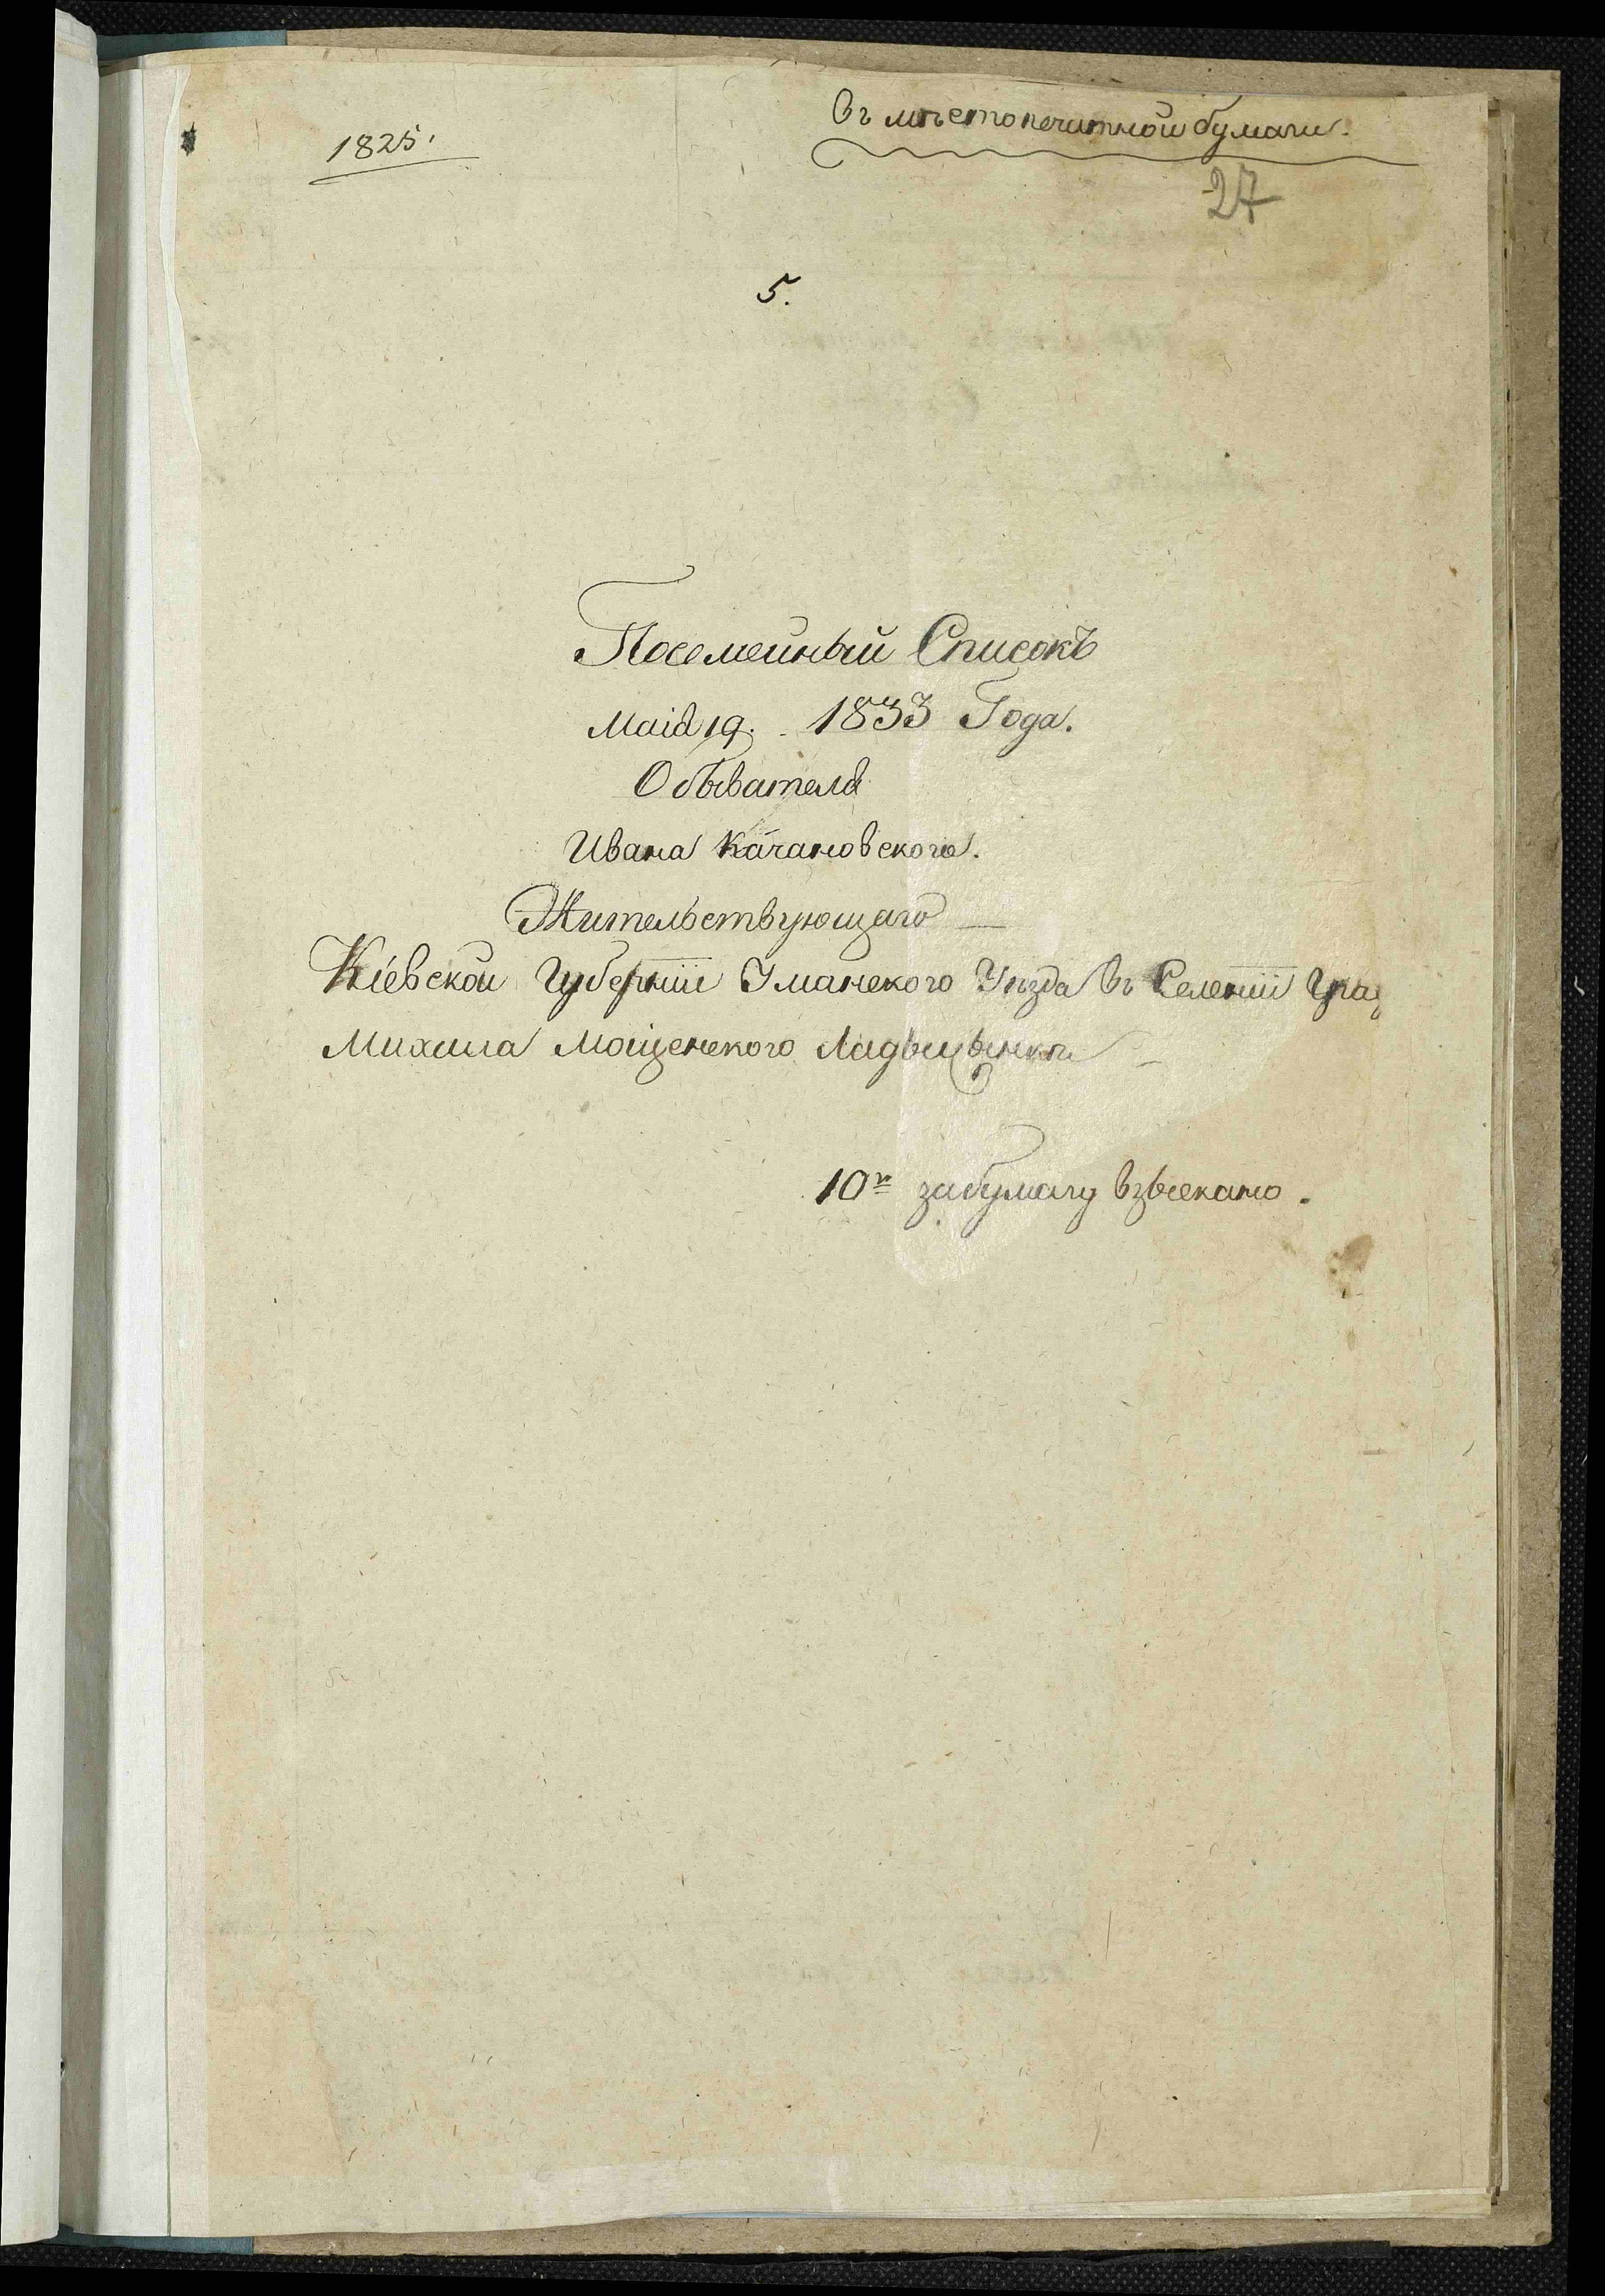 1825.
Въ мѣсто печатной бумаги.
27
5.
Посемейный Списокъ
Маія 19. 1833 Года.
Обывателя
Ивана Качановского.
Жительствующаго
Кіевской Губерніи Уманского Уѣзда въ Селеніи
Михаила Мощенского Ладыжынкѣ
10 к забумагу взыскано.